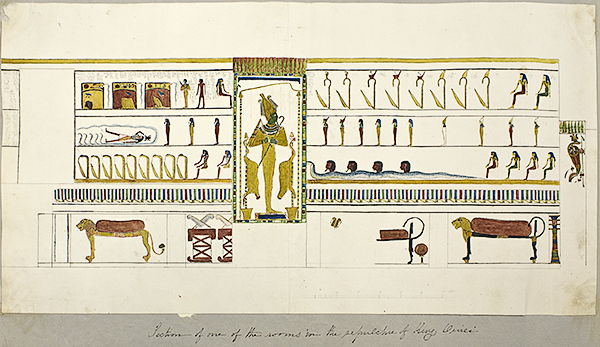 Section of one of the rooms in the sepulchre of King